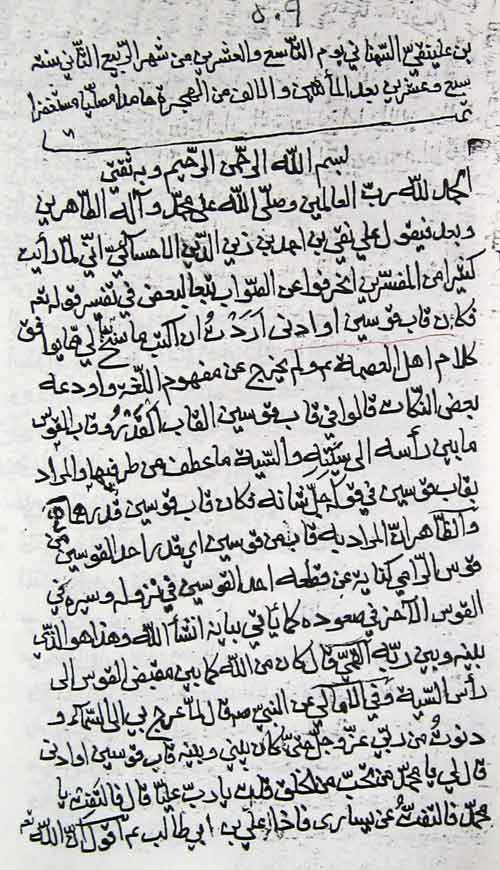 ٥٠٩
بن علينقي النهائي يوم التاسع والعشرين من شهر الربيع الثاني سنه
سبع وعشرين بعد المأتين والالف من الهجرة حامدا مصليا مستغفرا
تم
بسم الله الرحمن الرحيم وبه ثقتي
الحمد لله رب العالمين وصلى الله على محمد وآله الطاهرين
وبعد فيقول علي نقي بن احمد بن زين الدين الاحسائي اني لما رأيت
كثيرا من المفسرين انحرفوا عن الصواب تبعا لبعض في تفسير قوله تعم
فكان قاب قوسين او ادنى اردت ان اكتب ما سنح لي مما يوافق
كلام اهل العصمة عم ولم يخرج عن مفهوم اللغة واودعه
بعض النكات قالوا في قاب قوسين القاب القدر وقاب القوس
ما بين رأسه الى سيته والسية ما عطف من طرفيها والمراد
بقاب قوسين في قوله جل شانه فكان قاب قوسين قدر
والظاهر ان المراد به قاب من قوسين اي قدر احد القوسين من
قوس الرامي كناية عن قطعه احد القوسين في نزوله وسيره في
القوس الآخر في صعوده كما يأتي بيانه انشأ الله وهذا هو الذي
بينه وبين ربه القمي قال كان من الله كما بين مقبض القوس الى
رأس السية وفي الامالي عن النبي صه قال لما عرج بي الى السماء و
دنوت من ربي عز وجل حتى كان بيني وبينه قاب قوسين او ادنى
قال لي يا محمد من تحب من الخلق قلت يا رب عليا قال فالتفت يا
محمد فالتفت عن يساري فاذا علي بن ابي طالب عم اقول ان الله تعم